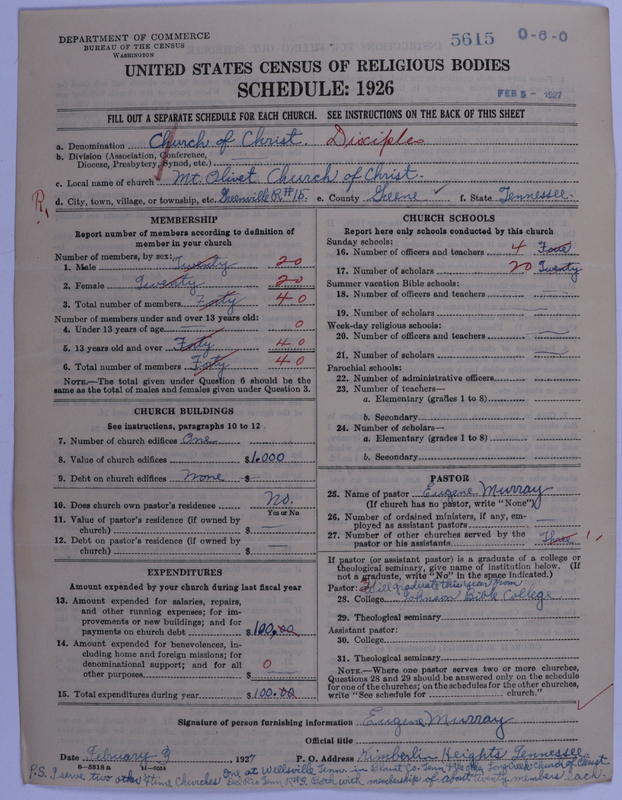 DEPARTMENT OF COMMERCE
BUREAU OF THE CENSUS
WASHINGTON
5615 0-6-0
UNITED STATES CENSUS OF RELIGIOUS BODIES
SCHEDULE: 1926
FEB 5 - 1927
FILL OUT A SEPARATE SCHEDULE FOR EACH CHURCH. SEE INSTRUCTIONS ON THE BACK OF THIS SHEET
a. Denomination Church of Christ. Disciples
b. Division (Association, Conference, Diocese, Presbytery, Synod, etc.)
c. Local name of church Mt. Olivet Church of Christ.
R, d. City, town, village, or township, etc. Greenville R#15. e. County Greene f. State Tennessee.
MEMBERSHIP
Report number of members according to definition of member in your church
Number of members, by sex:
1. Male Twenty 20
2. Female Twenty 20
3. Total number of members Forty 40
Number of members under and over 13 years old:
4. Under 13 years of age 0
5. 13 years old and over Forty 40
6. Total number of members Forty 40
NOTE.—The total given under Question 6 should be the same as the total of males and females given under Question 3.
CHURCH BUILDINGS
See instructions, paragraphs 10 to 12
7. Number of church edifices One
8. Value of church edifices $1.000
9. Debt on church edifices None $
10. Does church own pastor's residence No.
Yes or No
11. Value of pastor's residence (if owned by church) $
12. Debt on pastor's residence (if owned by church) $
EXPENDITURES
Amount expended by your church during last fiscal year
13. Amount expended for salaries, repairs, and other running expenses; for improvements or new buildings; and for payments on church debt $100.00
14. Amount expended for benevolences, including home and foreign missions; for denominational support; and for all other purposes 0 $
15. Total expenditures during year $100.00
CHURCH SCHOOLS
Report here only schools conducted by this church
Sunday schools:
16. Number of officers and teachers 4 Four
17. Number of scholars 20 Twenty
Summer vacation Bible schools:
18. Number of officers and teachers
19. Number of scholars
Week-day religious schools:
20. Number of officers and teachers
21. Number of scholars
Parochial schools:
22. Number of administrative officers
23. Number of teachers—
a. Elementary (grades 1 to 8)
b. Secondary
24. Number of scholars—
a. Elementary (grades 1 to 8)
b. Secondary
PASTOR
25. Name of pastor Eugene Murray
(If church has no pastor, write "None")
26. Number of ordained ministers, if any, employed as assistant pastors
27. Number of other churches served by the pastor or his assistants
If pastor (or assistant pastor) is a graduate of a college or theological seminary, give name of institution below. (If not a graduate, write "No" in the space indicated.)
Pastor: Will graduate this year from
28. College Johnson Bible College
29. Theological seminary
Assistant pastor:
30. College
31. Theological seminary
NOTE.—Where one pastor serves two or more churches, Questions 28 and 29 should be answered only on the schedule for one of the churches; on the schedules for the other churches, write "See schedule for church."
Signature of person furnishing information Eugene Murray
Official title
Date February 3, 1927 P. O. Address Kimberlin Heights, Tennessee.
8—5518a
P.S. I serve two other time churches One at Wellsville Tenn. in Blount Co. Tenn Church of Christ
Del Rio Tenn, Both with membership of about twenty members each.